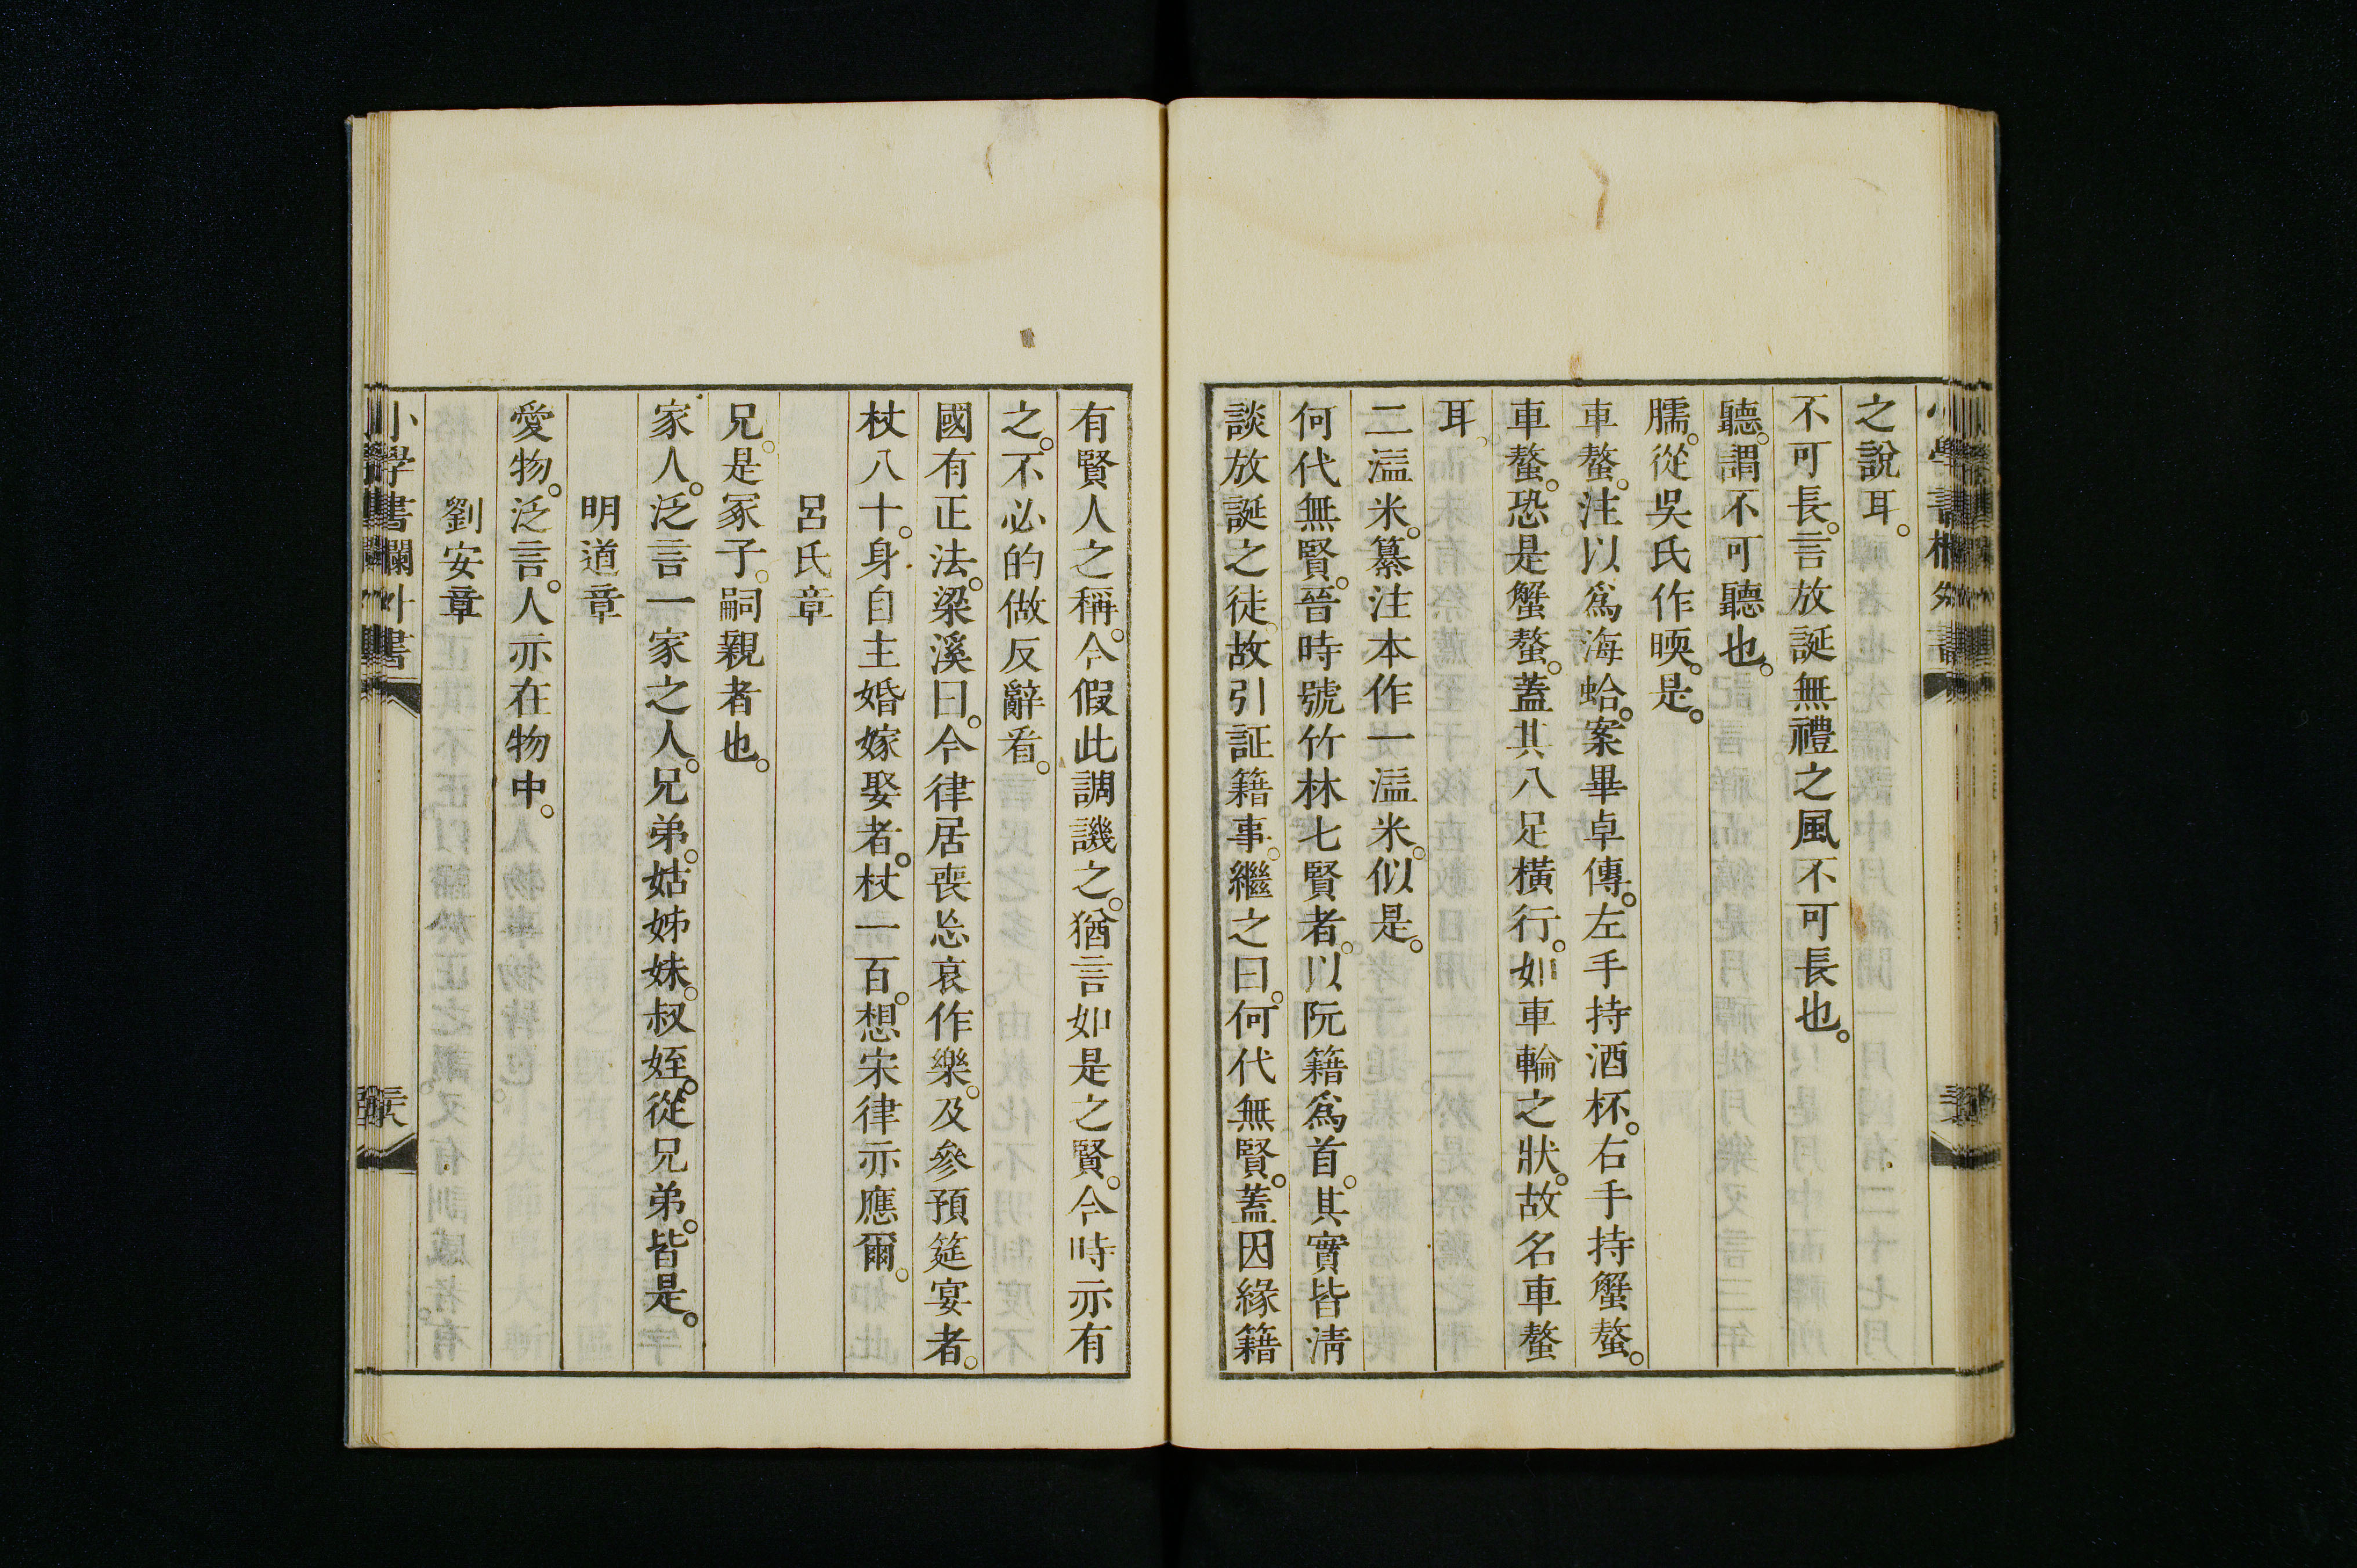 之說耳。
不可長。言放誕無禮之風不可長也。
聽。謂不可聽也。
臑。從吳氏作㬉。是。
車螯。注以爲海蛤。案畢卓傳。左手持酒杯。右手持蟹螯。
車螯。恐是蟹螯。蓋其八足橫行。如車輪之狀。故名車螯
耳。
二溢米。纂注本作一溢米。似是。
何代無賢。晉時號竹林七賢者。以阮籍爲首。其實皆淸
談放誕之徒。故引証籍事。繼之曰。何代無賢。蓋因緣籍
有賢人之稱。今假此調譏之。猶言如是之賢。今時亦有
之。不必的做反辭看。
國有正法。梁溪曰。今律居喪忘哀作樂。及參預筵宴者。
杖八十。身自主婚嫁娶者。杖一百。想宋律亦應爾。
呂氏章
兄。是冢子。嗣親者也。
家人。泛言一家之人。兄弟。姑姊妹。叔姪。從兄弟。皆是。
明道章
愛物。泛言。人亦在物中。
劉安章
小學書欄外書